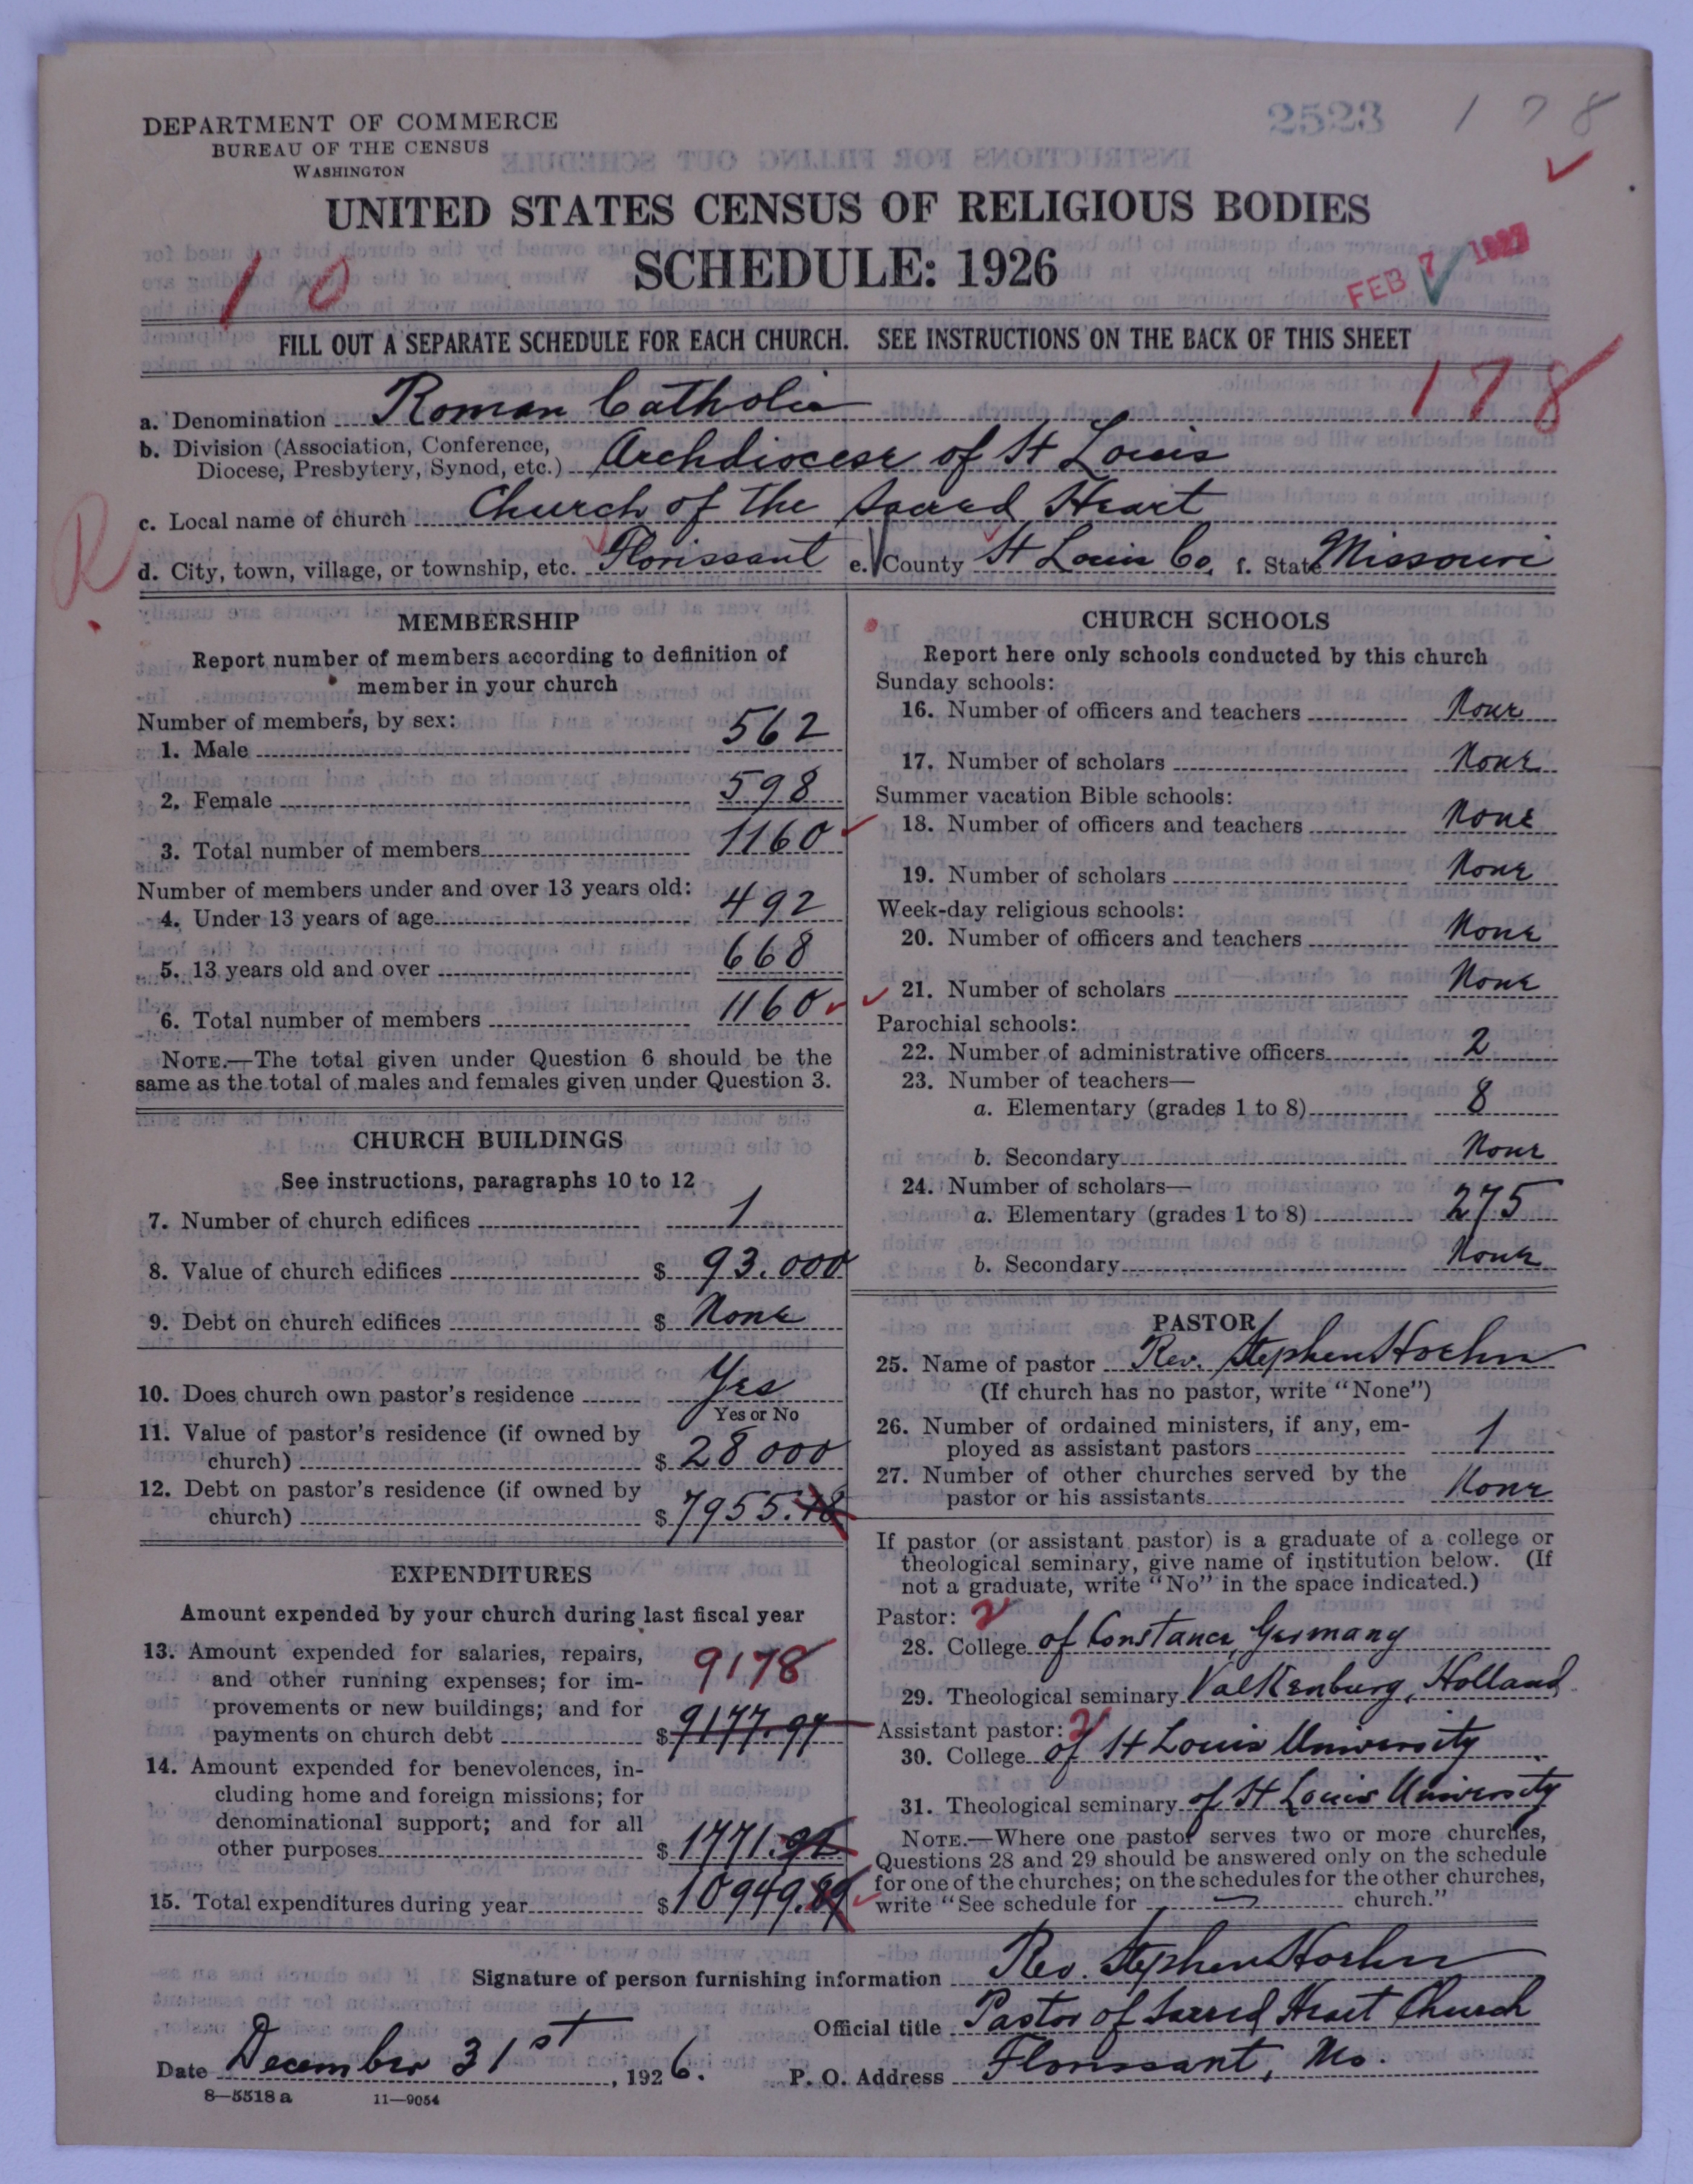 DEPARTMENT OF COMMERCE
BUREAU OF THE CENSUS
WASHINGTON
2523
178
UNITED STATES CENSUS OF RELIGIOUS BODIES
SCHEDULE: 1926
10
FEB 7 1927
FILL OUT A SEPARATE SCHEDULE FOR EACH CHURCH. SEE INSTRUCTIONS ON THE BACK OF THIS SHEET
178
a. Denomination Roman Catholic
b. Division (Association, Conference,
Diocese, Presbytery, Synod, etc.) Archdiocese of St Louis
c. Local name of church Church of the Sacred Heart
R
d. City, town, village, or township, etc. Florissant e. County St Louis Co. f. State Missouri
MEMBERSHIP
Report number of members according to definition of
member in your church
Number of members, by sex:
1. Male 562
2. Female 598
3. Total number of members 1160
Number of members under and over 13 years old:
4. Under 13 years of age 492
5. 13 years old and over 668
6. Total number of members 1160
NOTE.—The total given under Question 6 should be the
same as the total of males and females given under Question 3.
CHURCH BUILDINGS
See instructions, paragraphs 10 to 12
7. Number of church edifices 1
8. Value of church edifices $ 93.000
9. Debt on church edifices $ None
10. Does church own pastor's residence Yes
Yes or No
11. Value of pastor's residence (if owned by
church) $ 28000
12. Debt on pastor's residence (if owned by
church) $ 7955.18
EXPENDITURES
Amount expended by your church during last fiscal year
13. Amount expended for salaries, repairs,
and other running expenses; for im-
provements or new buildings; and for
payments on church debt $ 9177.97
9178
14. Amount expended for benevolences, in-
cluding home and foreign missions; for
denominational support; and for all
other purposes $ 1771.92
15. Total expenditures during year $ 10949.89
CHURCH SCHOOLS
Report here only schools conducted by this church
Sunday schools:
16. Number of officers and teachers None
17. Number of scholars None
Summer vacation Bible schools:
18. Number of officers and teachers None
19. Number of scholars None
Week-day religious schools:
20. Number of officers and teachers None
21. Number of scholars None
Parochial schools:
22. Number of administrative officers 2
23. Number of teachers—
a. Elementary (grades 1 to 8) 8
b. Secondary None
24. Number of scholars—
a. Elementary (grades 1 to 8) 275
b. Secondary None
PASTOR
25. Name of pastor Rev. Stephen Hoehn
(If church has no pastor, write "None")
26. Number of ordained ministers, if any, em-
ployed as assistant pastors 1
27. Number of other churches served by the
pastor or his assistants None
If pastor (or assistant pastor) is a graduate of a college or
theological seminary, give name of institution below. (If
not a graduate, write "No" in the space indicated.)
Pastor: 2
28. College of Constance, Germany
29. Theological seminary Valkenburg, Holland
Assistant pastor: 2
30. College of St Louis University
31. Theological seminary of St Louis University
NOTE.—Where one pastor serves two or more churches,
Questions 28 and 29 should be answered only on the schedule
for one of the churches; on the schedules for the other churches,
write "See schedule for — church."
Signature of person furnishing information Rev. Stephen Hoehn
Official title Pastor of Sacred Heart Church
Date December 31st, 1926. P. O. Address Florissant, Mo.
8—5518 a 11—9054